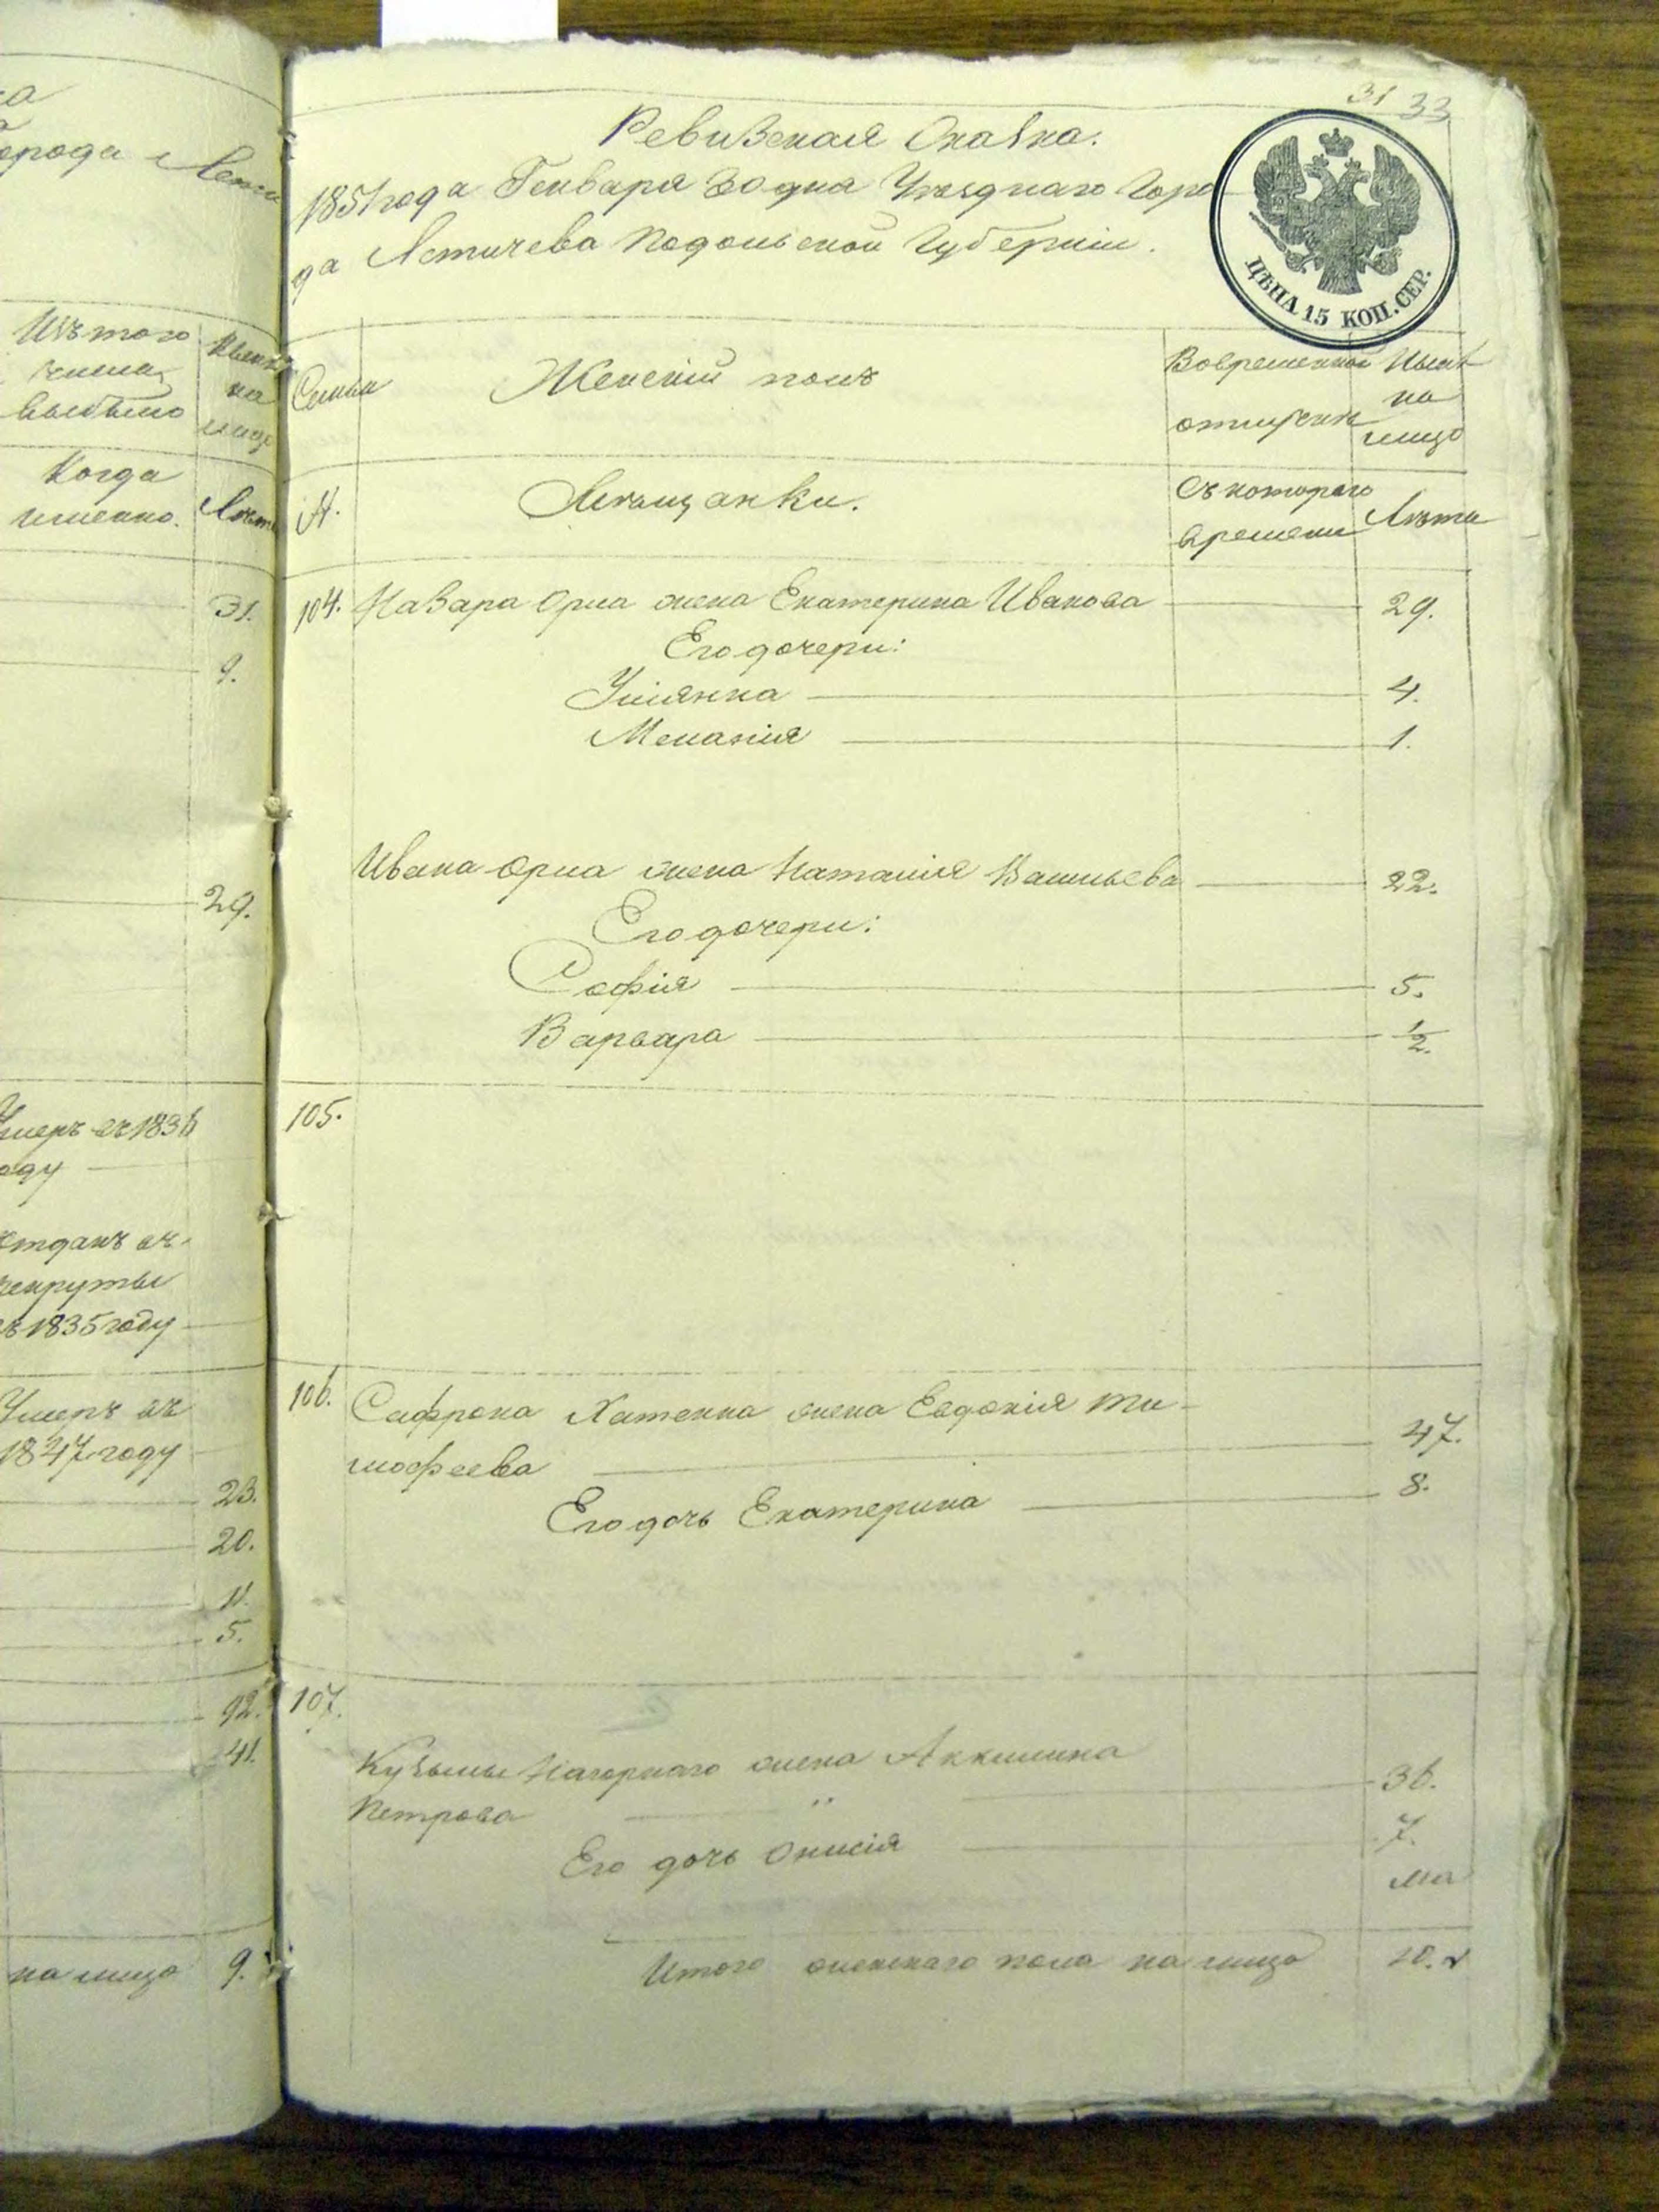 ка
орода Лети
Изъ того
числа
выбыло
Нынѣ
на
лицо
Когда
именно.
Лѣта
31.
9.
29.
Умеръ въ 1836
оду
Отданъ въ
рекруты
въ 1835 году
Умеръ въ
1847 году
23.
20.
11.
5.
92.
41.
на лицо 9.
31 33
Ревизская Сказка.
1851 года Генваря 30 дня Уѣзднаго Горо
да Летичева Подольской Губерніи.
ЦѢНА 15 КОП. СЕР.
Семьи
Женскій полъ
Вовременной
отлучкѣ
Нынѣ
на
лицо
№.
Мѣщанки.
Съ котораго
времени
Лѣта
104. Назара Орла жена Екатерина Иванова 29.
Его дочери:
Улиянна 4.
Меланія 1.
Ивана Орла жена Наталія Васильева 22.
Его дочери:
Софія 5.
Варвара 1/2.
105.
106. Сафрона Хатенка жена Евдокія Ти-
мофеева 47.
Его дочь Екатерина 8.
107.
Кузьмы Нагорнаго жена Аккилина
Петрова " 36.
Его дочь Онисія 7.
Итого женскаго пола на лицо 10.